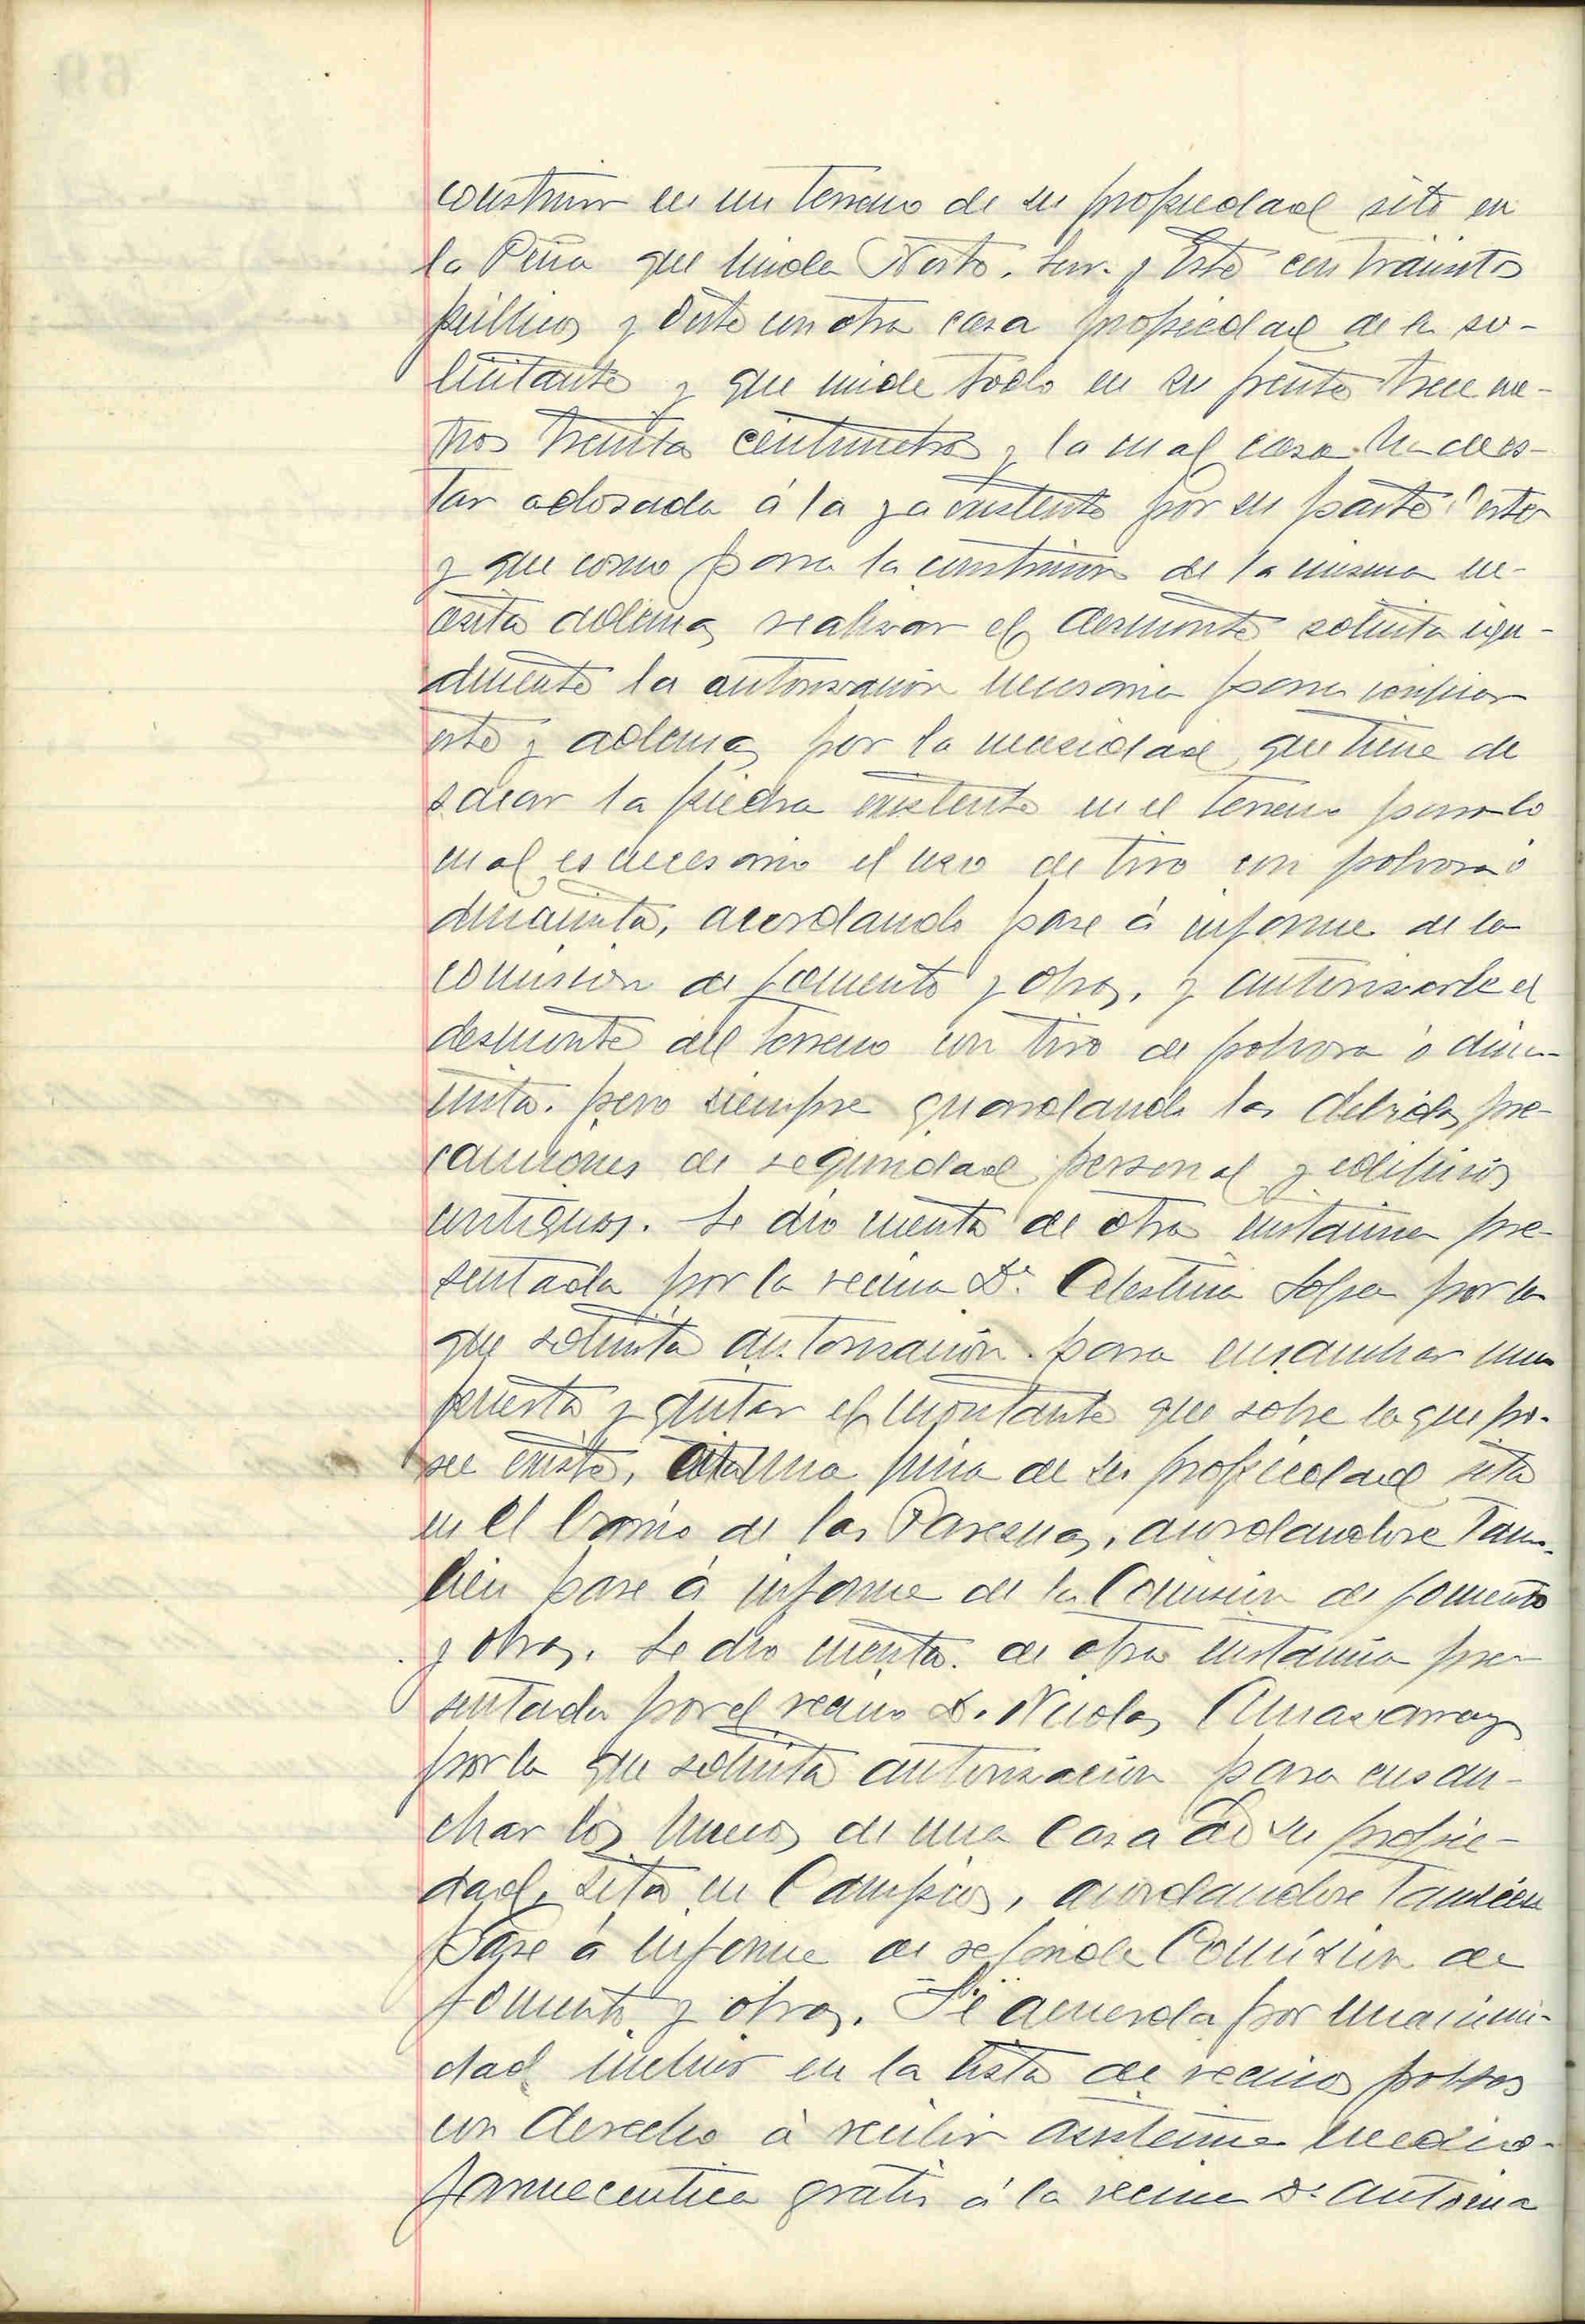 construir en un terreno de su propiedad sito en
la Peña que linda Norte. Sur. y Este con tránsitos
públicos y Oeste con otra casa propiedad de la so-
licitante y que mide todo en su frente trece me-
tros treinta centímetros y la cual casa ha de es-
tar adosada á la ya existente por su parte Oeste
y que como para la construccion de la misma ne-
cesita además realizar el desmonte solicita igu-
almente la autorización necesaria para verificar
este y además por la necesidad que tiene de
sacar la piedra existente en el terreno para lo
cual es necesario el uso de tiro con polvora ó
dinamita, acordando pase á informe de la
comision de fomento y obras, y autorizarle el
desmonte del terreno con tiro de polvora ó dina-
mita. pero siempre guardando las debidas pre-
cauciones de seguridad personal y edificios
contiguos. Se dio cuenta de otra instancia pre-
sentada por la vecina Dª. Celestina por la
que solicita autorización para ensanchar una
puerta y quitar el montante que sobre la que po-
see existe, en una finca de su propiedad sita
en el barrio de las acordandose tam-
bien pase á informe de la Comision de fomento
y obras. Se dio cuenta. de otra instancia pre-
sentada por el vecino D. Nicolas
por la que solicita autorizacion para ensan-
char los huecos de una casa de su propie-
dad, sita en Campios, acordandose tambien
pase á informe de referida Comisión de
fomento y obras. Se acuerda por unanimi-
dad incluir en la lista de vecinos pobres
con derecho á recibir asistencia medico-
farmaceutica gratis á la vecina Dª Antonia